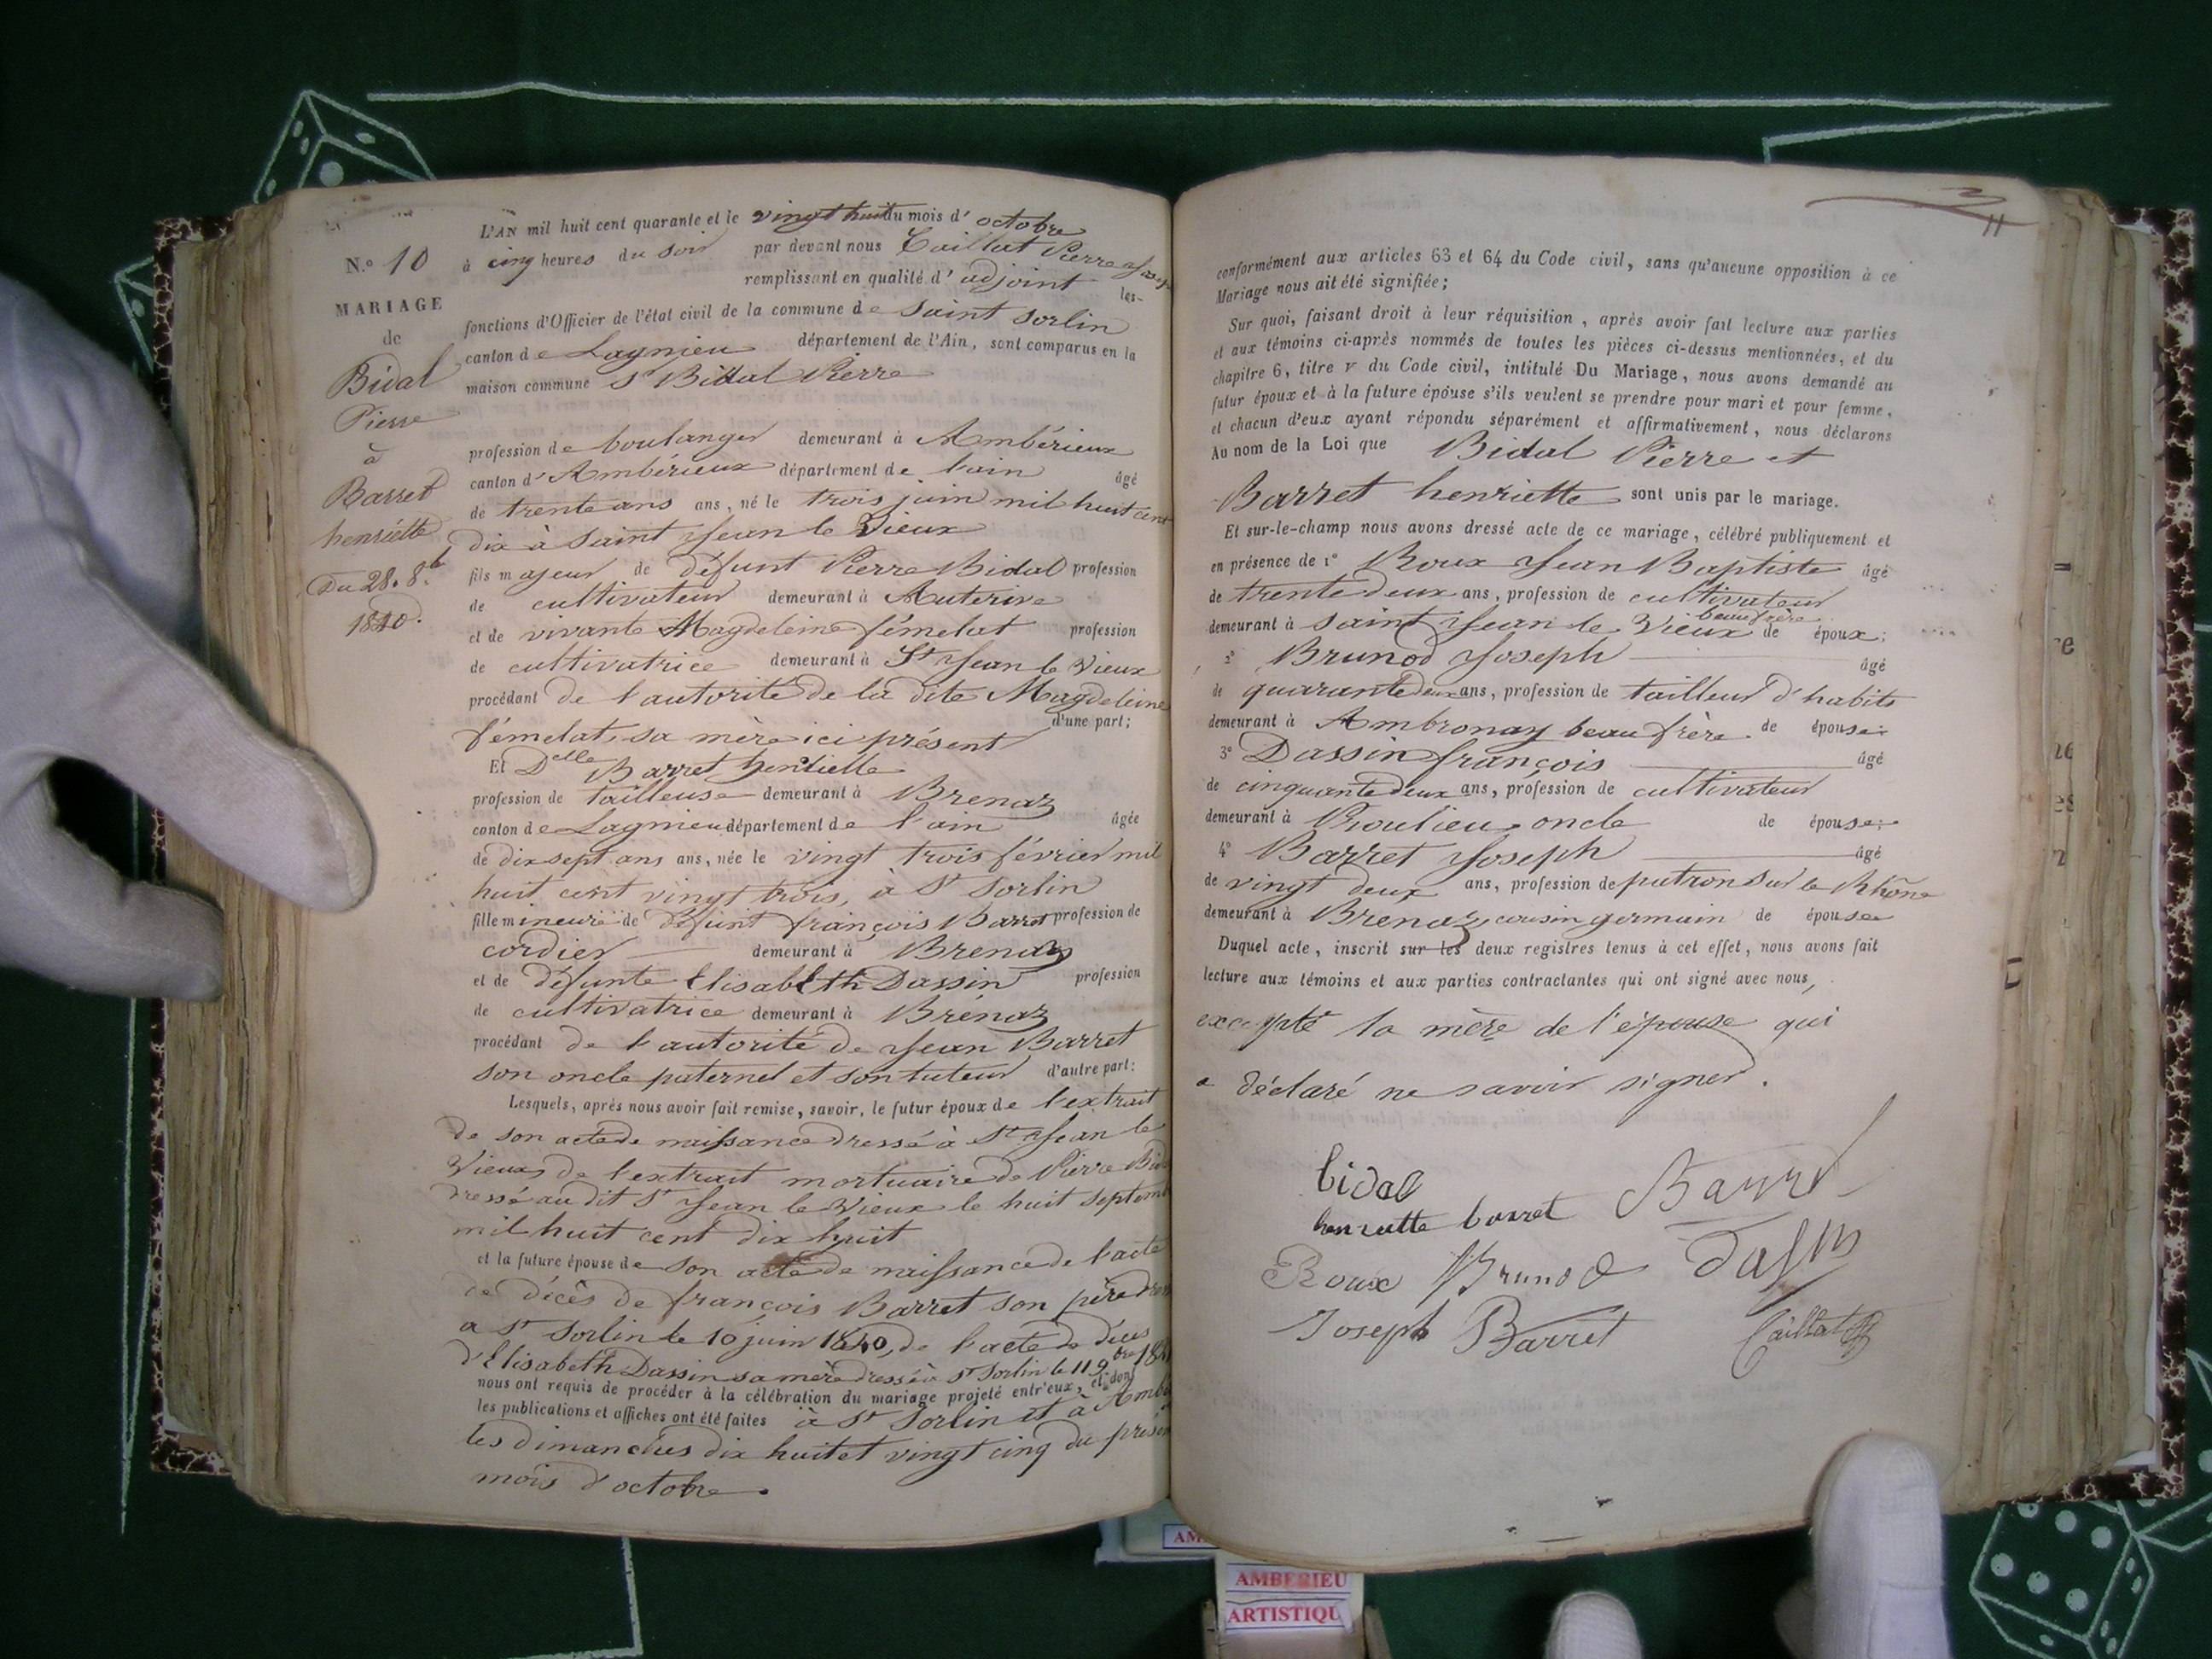 N.º 10
MARIAGE
de
Bidal
Pierre
à
Barret
henriette
Du 28. 8.b
1840.
L'AN mil huit cent quarante et le vingt huit du mois d'octobre
à cinq heures du soir par devant nous Caillat Pierre
remplissant en qualité d'adjoint les-
fonctions d'Officier de l'état civil de la commune de Saint Sorlin
canton de Lagnieu département de l'Ain, sont comparus en la
maison commune Sr Bidal Pierre
profession de boulanger demeurant à Ambérieux
canton d'Ambérieux département de l'ain âgé
de trente ans ans, né le trois juin mil huit cent
dix à Saint Jean le Vieux
fils majeur de défunt Pierre Bidal profession
de cultivateur demeurant à Auterive
et de vivante Magdeleine fémelat profession
de cultivatrice demeurant à St Jean le Vieux
procédant de l'autorité de la dite Magdeleine
fémelat, sa mère ici présent d'une part;
Et Delle Barret henrielle
profession de tailleuse demeurant à Brenaz
canton de Lagnieu département de l'ain âgée
de dix sept ans ans, née le vingt trois février mil
huit cent vingt trois, à St Sorlin
fille mineure de défunt françois Barret profession de
cordier demeurant à Brenaz
et de défunte Elisabeth Dassin profession
de cultivatrice demeurant à Brénaz
procédant de l'autorité de Jean Barret
son oncle paternel et son tuteur d'autre part;
Lesquels, après nous avoir fait remise, savoir, le futur époux de l'extrait
de son acte de naissance dressé à St Jean le
Vieux, de l'extrait mortuaire de Pierre
dressé au dit St Jean le Vieux le huit
mil huit cent dix huit
et la future épouse de son acte de naissance de l'acte
de décès de françois Barret son père
a St Sorlin le 10 juin 1840, de l'acte de décès
d'Elisabeth Dassin sa mère dressé à St Sorlin le 11 9bre
nous ont requis de procéder à la célébration du mariage projeté entr'eux, et dont
les publications et affiches ont été faites à St Sorlin et à
les dimanches dix huit et vingt cinq du
mois d'octobre.
11
conformément aux articles 63 et 64 du Code civil, sans qu'aucune opposition à ce
Mariage nous ait été signifiée;
Sur quoi, faisant droit à leur réquisition, après avoir fait lecture aux parties
et aux témoins ci-après nommés de toutes les pièces ci-dessus mentionnées, et du
chapitre 6, titre v du Code civil, intitulé Du Mariage, nous avons demandé au
futur époux et à la future épouse s'ils veulent se prendre pour mari et pour femme,
et chacun d'eux ayant répondu séparément et affirmativement, nous déclarons
Au nom de la Loi que Bidal Pierre et
Barret henriette sont unis par le mariage.
Et sur-le-champ nous avons dressé acte de ce mariage, célébré publiquement et
en présence de 1º Roux Jean Baptiste âgé
de trente deux ans, profession de cultivateur
demeurant à Saint Jean le Vieux beau frère de époux;
2º Brunod Joseph âgé
de quarante deux ans, profession de tailleur d'habits
demeurant à Ambronay beau frère de épouse;
3º Dassin françois âgé
de cinquante deux ans, profession de cultivateur
demeurant à Proulieu, oncle de épouse;
4º Barret Joseph âgé
de vingt deux ans, profession de patron sur le Rhône
demeurant à Brenaz, cousin germain de épouse
Duquel acte, inscrit sur les deux registres tenus à cet effet, nous avons fait
lecture aux témoins et aux parties contractantes qui ont signé avec nous,
excepté la mère de l'épouse qui
a déclaré ne savoir signer.
bidal
henriette barret Barret
Roux Brunod Dassin
Joseph Barret Caillat
AMBERIEU
ARTISTIQU